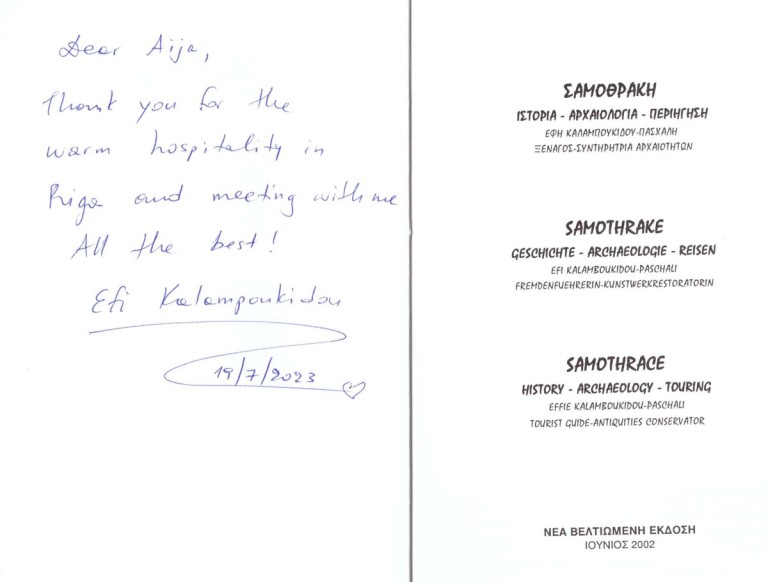 Dear Aija,
Thank you for the
warm hospitality in
Riga and meeting with me
All the best!
Efi Kalampoukidou
19/7/2023
ΣΑΜΟΘΡΑΚΗ
ΙΣΤΟΡΙΑ - ΑΡΧΑΙΟΛΟΓΙΑ - ΠΕΡΙΗΓΗΣΗ
ΕΦΗ ΚΑΛΑΜΠΟΥΚΙΔΟΥ-ΠΑΣΧΑΛΗ
ΞΕΝΑΓΟΣ-ΣΥΝΤΗΡΗΤΡΙΑ ΑΡΧΑΙΟΤΗΤΩΝ
SAMOTHRAKE
GESCHICHTE - ARCHAEOLOGIE - REISEN
EFI KALAMBOUKIDOU-PASCHALI
FREMDENFUEHRERIN-KUNSTWERKRESTORATORIN
SAMOTHRACE
HISTORY - ARCHAEOLOGY - TOURING
EFFIE KALAMBOUKIDOU-PASCHALI
TOURIST GUIDE-ANTIQUITIES CONSERVATOR
ΝΕΑ ΒΕΛΤΙΩΜΕΝΗ ΕΚΔΟΣΗ
ΙΟΥΝΙΟΣ 2002